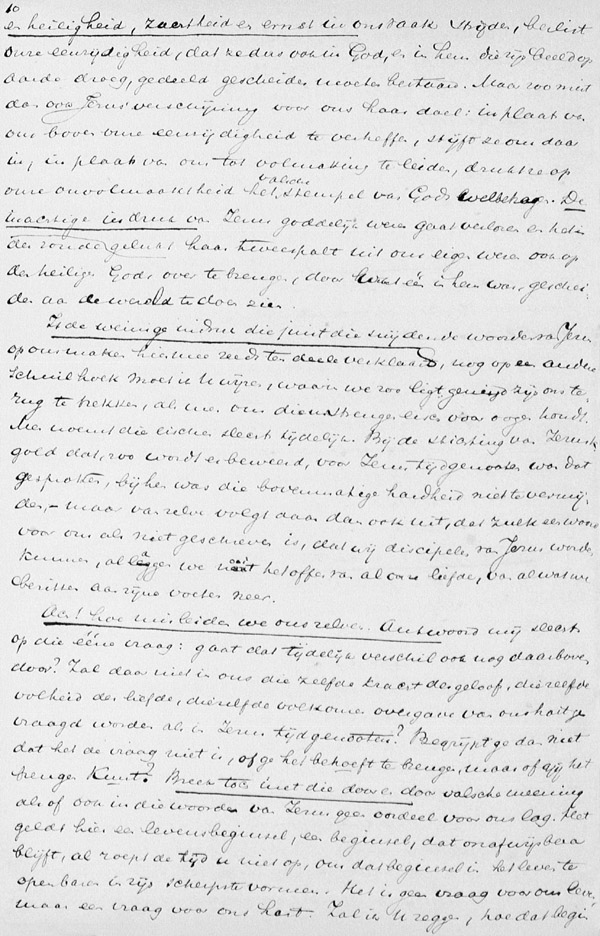 10
en heiligheid, zachtheid en ernst in ons vaak strijden, beslist
onze eenzijdigheid, dat ze dus ook in God, en in hem die zijn beeld op
aarde droeg, gedeeld gescheiden moeten bestaan. Maar zoo mist
dan ook Jezus' verschijning voor ons haar doel: in plaats van
ons boven onze eenzijdigheid te verheffen, stijft ze ons daar
in, in plaats van ons tot volmaking te leiden, drukt ze op
onze onvolmaaktheid het valschen stempel van Gods welbehagen. De
machtige indruk van Jezus goddelijk wezen gaat verloren en het is
de zonde gelukt haar tweespalt uit ons eigen wezen ook op
den heiligen Gods over te brengen, door wat één in hem was, geschei-
den aan de wereld te doen zien.
Is de weinige indruk die juist die snijdende woorden van Jezus
op ons maken hiermee reeds ten deele verklaard, nog op een andere
schuilhoek moet ik U wijzen, waarin we zoo ligt geneigd zijn ons te-
rug te trekken, als men ons dien strengen eisch voor oogen houdt.
Men noemt die eischen slechts tijdelijk. Bij de stichting van Jezus kerk
gold dat, zoo wordt er beweerd, voor Jezus tijdgenooten was dat
gesproken, bij hen was die bovenmatige hardheid niet te vermij-
den, – maar van zelve volgt daar dan ook uit, dat zulk een woord
voor ons als niet geschreven is, dat wij discipelen van Jezus worden
kunnen, al leggen we niet het offer van al onze liefde, van al wat we
bezitten aan zijne voeten neer.
Ach! hoe misleiden we ons zelven. Antwoord mij slechts
op die ééne vraag: gaat dat tijdelijk verschil ook nog daarboven
door? Zal daar niet in ons die zelfde kracht des geloofs, diezelfde
volheid der liefde, diezelfde volkomen overgave van ons hart ge
vraagd worden als in Jezus tijdgenooten? Begrijpt ge dan niet
dat het de vraag niet is, of ge het behoeft te brengen, maar of gij het
brengen kunt? Breek toch met die door en door valsche meening
als of ook in die woorden van Jezus geen oordeel voor ons lag. Het
geldt hier een levensbeginsel, een beginsel, dat onafwijsbaar
blijft, al roept de tijd u niet op, om dat beginsel in het leven te
openbaren in zijn scherpste vormen. Het is geen vraag voor ons leven,
maar een vraag voor ons hart. Zal ik U zeggen, hoe dat begin